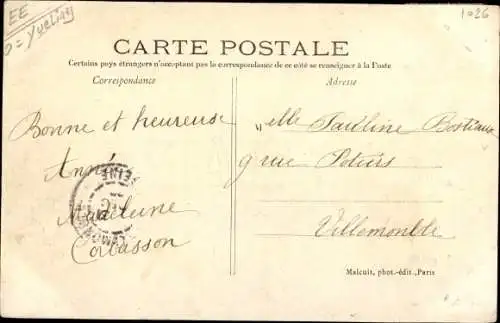 EE
1026
CARTE POSTALE
Certains pays étrangers n'acceptant pas la correspondance de ce côté se renseigner à la Poste
Correspondance
Adresse
Bonne et heureuse
Année
Madeleine
Corbasson
Mlle Pauline
9 rue Potiers
Villemomble
Malcuit, phot.-édit., Paris